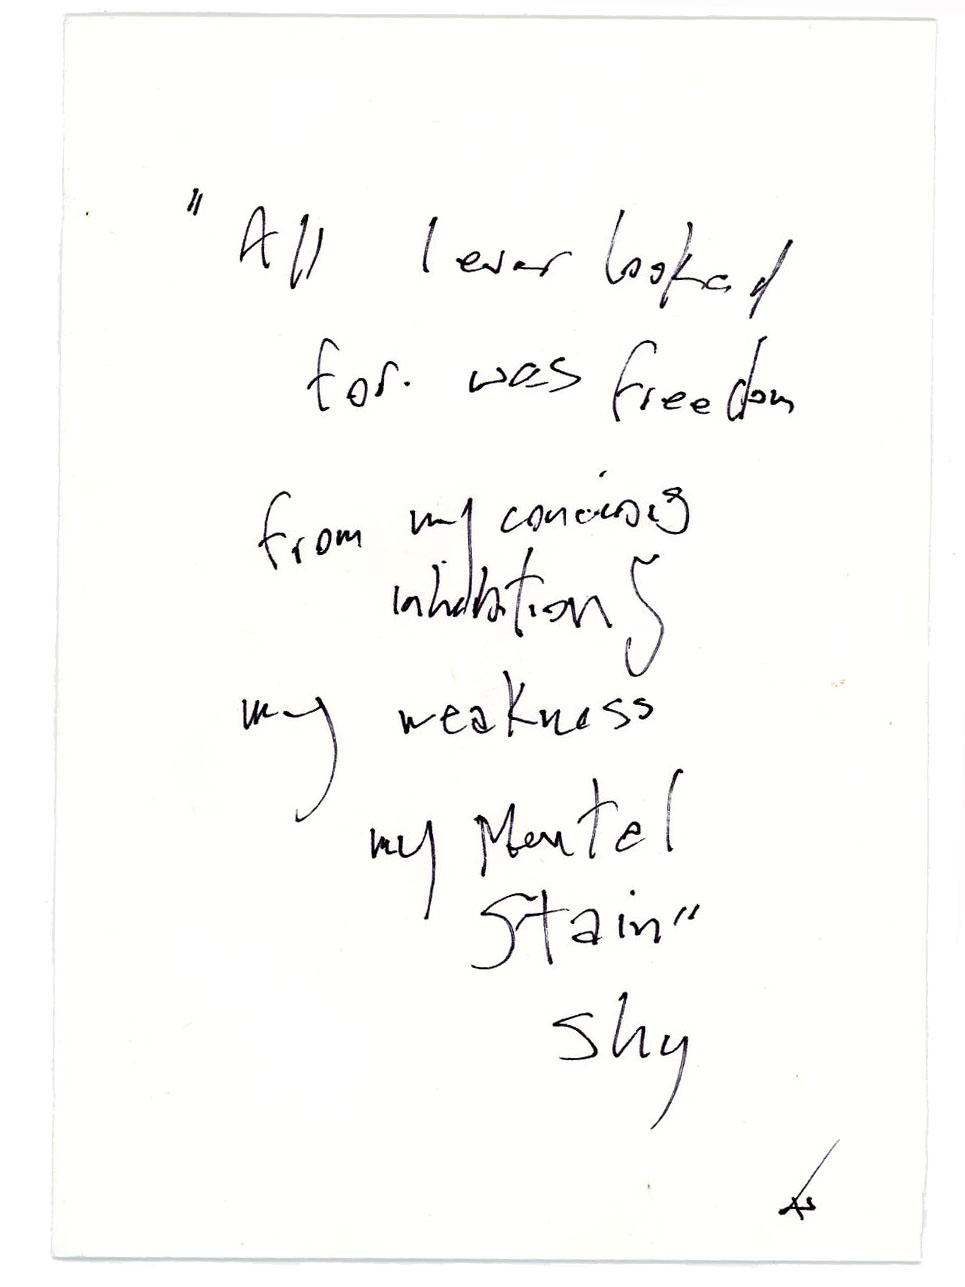 "All I ever looked
for. was freedom
from my concious
inhibitions
my weakness
my Mentel
Stain"
Shy
AS